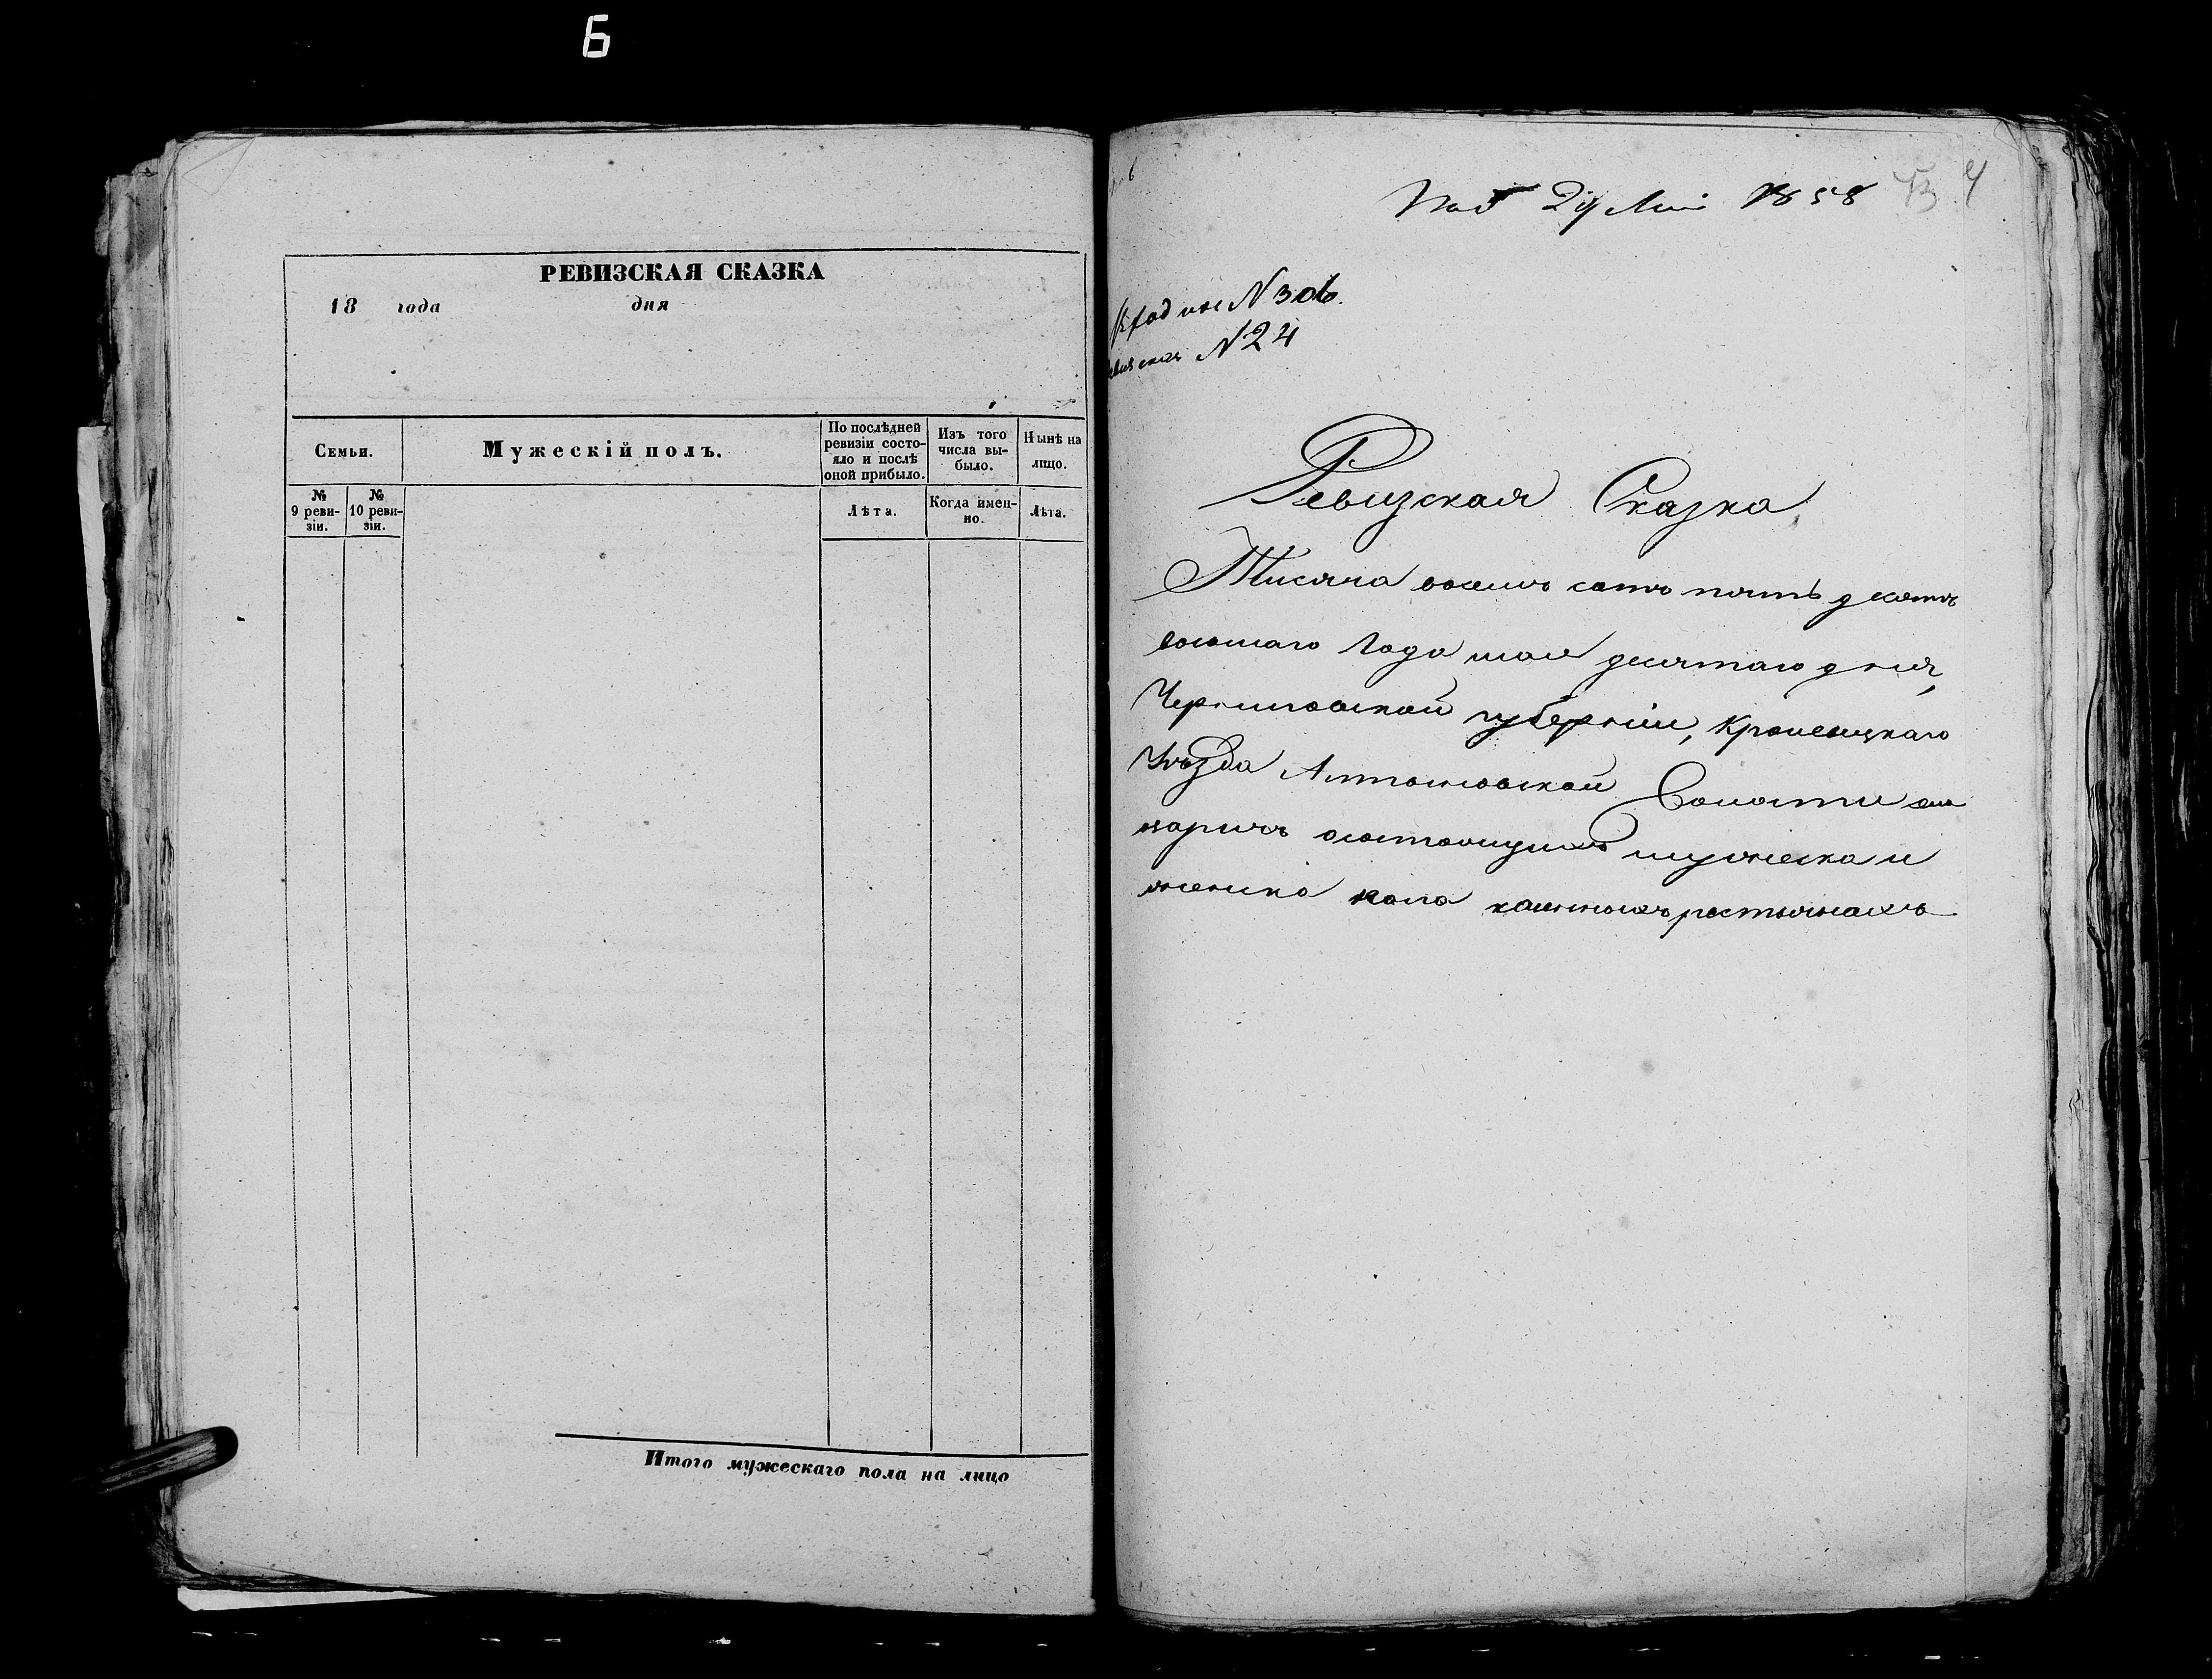 6
РЕВИЗСКАЯ СКАЗКА
18 года дня
Семьи.
Мужескій полъ.
По послѣдней ревизіи состо-
яло и послѣ
оной прибыло.
Изъ того
числа вы-
было.
Нынѣ на
лицо.
№
9 реви-
зіи.
№
10 реви-
зіи.
Лѣта.
Когда имен-
но.
Лѣта.
Итого мужескаго пола на лицо
29 1858
4
N 306.
N 24
Ревизская Сказка
Тисяча восемъ сотъ пять десятъ
восьмаго Года мая десятаго дня,
Черниговской губерніи, Кролевецкаго
Уѣзда Алтыновской Волости
состоящихъ мужеска и
женска пола